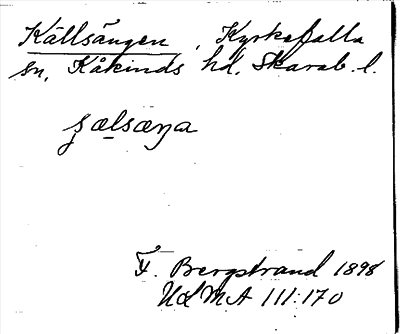 Källsängen, Kyrkefalla
sn, Kåkinds hd, Skarab. l.
ʂælsæŋa
F. Bergstrand 1898
ULMA 111:170